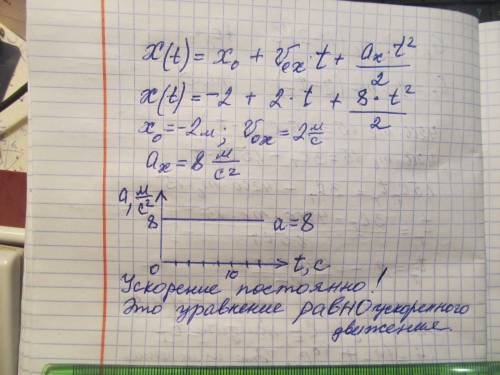 x(t) = x₀ + v₀ₓ·t + aₓ·t²/2
x(t) = -2 + 2·t + 8·t²/2
x₀ = -2м; v₀ₓ = 2 м/с
aₓ = 8 м/с²
a, м/с²
8 a=8
0 10 t, с
Ускорение постоянно!
Это уравнение равноускоренного
движения.